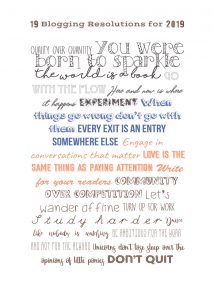 19 Blogging Resolutions for 2019
QUALITY OVER QUANTITY. you were
born to sparkle
the world is a book GO
WITH THE FLOW Here and now is where
it happens EXPERIMENT When
things go wrong don't go with
them EVERY EXIT IS AN ENTRY
SOMEWHERE ELSE Engage in
conversations that matter LOVE IS THE
SAME THING AS PAYING ATTENTION Write
for your readers COMMUNITY
OVER COMPETITION Let's
wander offline TURN UP FOR WORK
Study harder Dance
like nobody is watching BE AMBITIOUS FOR THE WORK
AND NOT FOR THE REWARD Unicorns don't lose sleep over the
opinions of little ponies DON'T QUIT